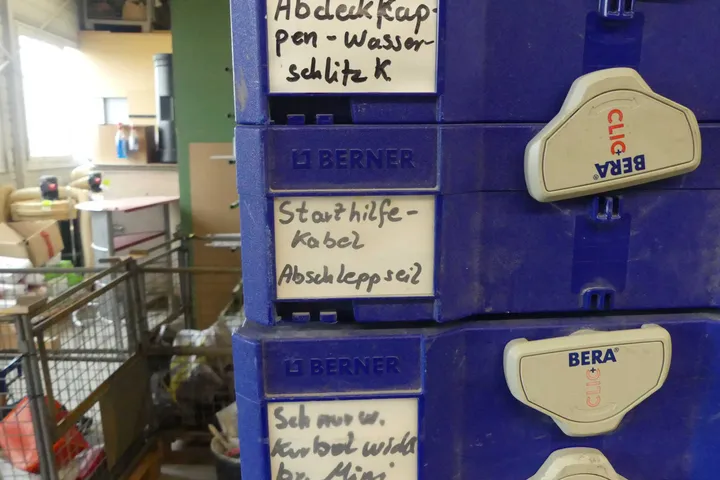 AbdeckKap-
pen-Wasser-
schlitz K
CLIC
BERA
BERNER
Starthilfe-
Kabel
Abschleppseil
BERNER
BERA®
CLIC
Schnur w.
Kurbel
Mini